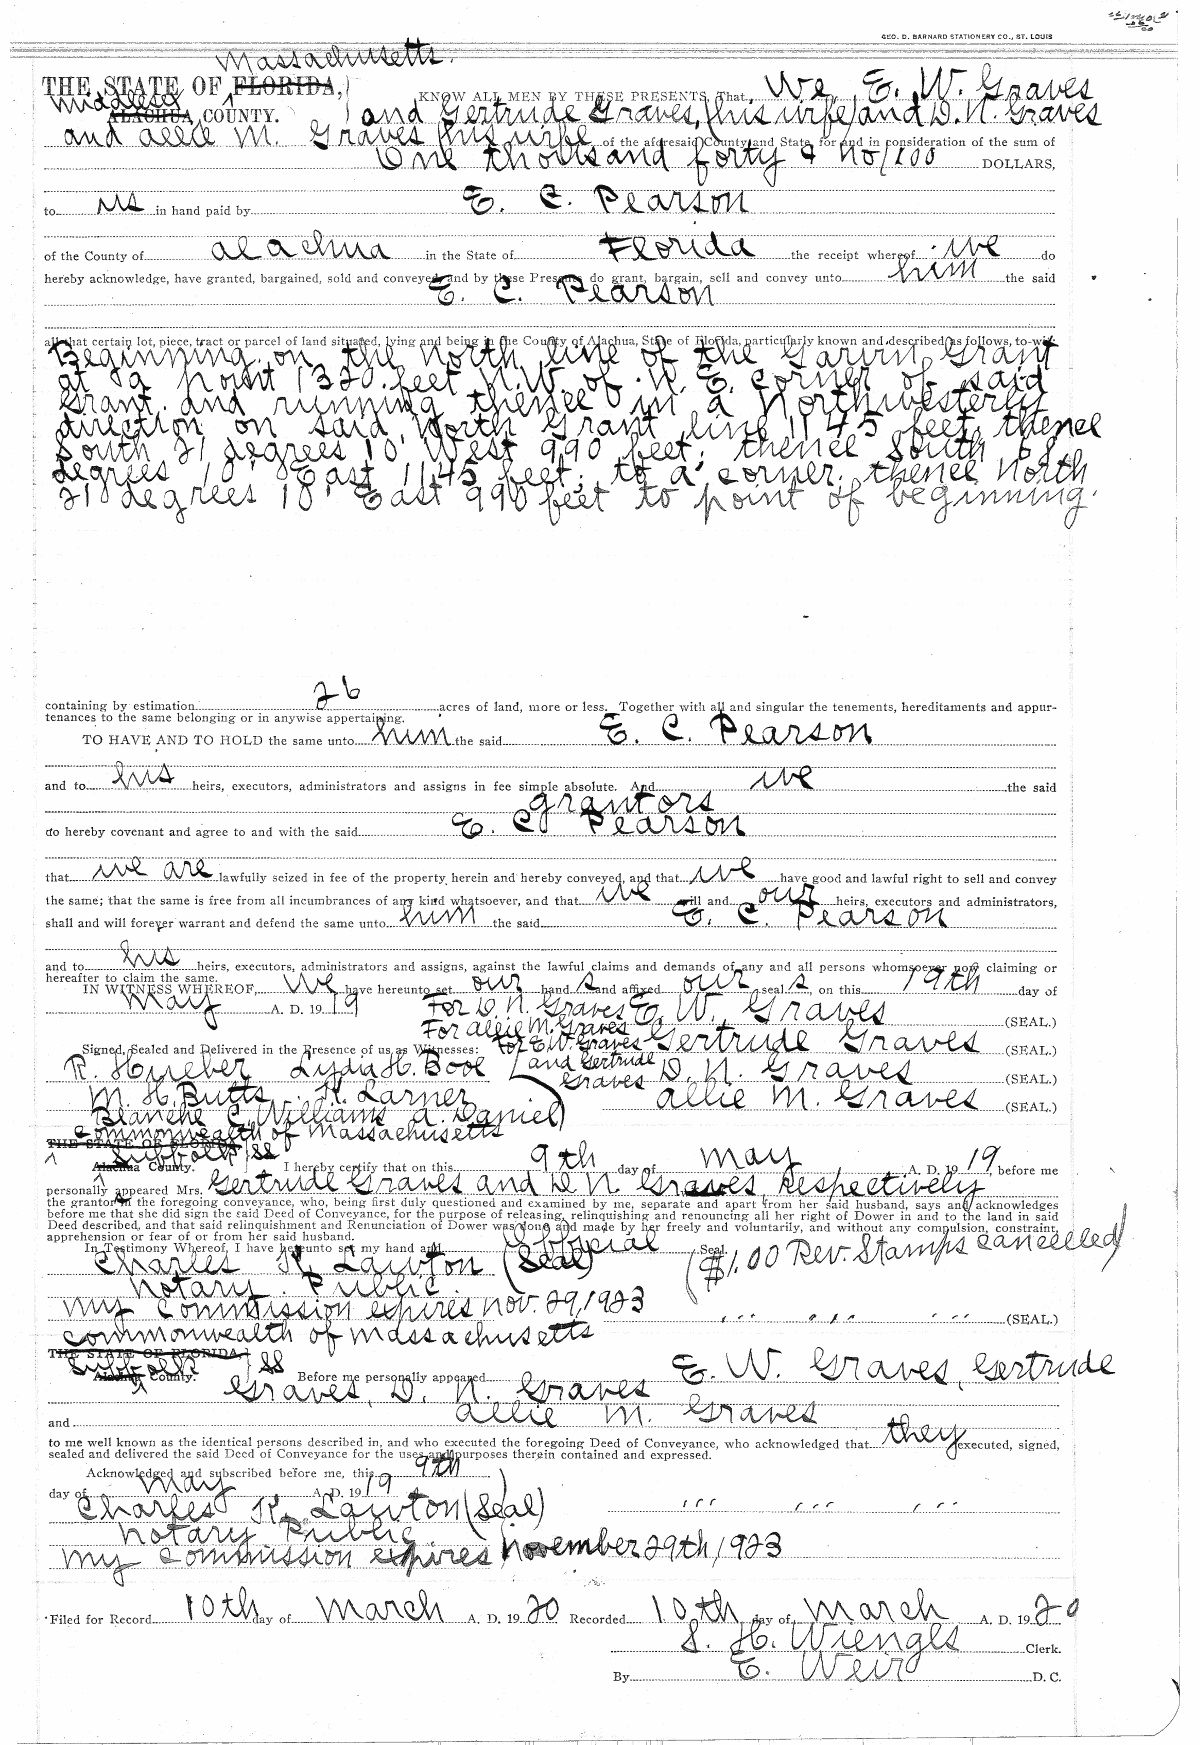 GEO. D. BARNARD STATIONERY CO., ST. LOUIS
Massachusetts.
THE STATE OF FLORIDA,
Middlesex
ALACHUA COUNTY.
KNOW ALL MEN BY THESE PRESENTS, That We, E. W. Graves
and Gertrude Graves, (his wife) and D. N. Graves
and allie M. Graves his wife of the aforesaid County and State, for and in consideration of the sum of
One thousand forty & no/100 DOLLARS,
to us in hand paid by E. C. Pearson
of the County of alachua in the State of Florida the receipt whereof we do
hereby acknowledge, have granted, bargained, sold and conveyed, and by these Presents do grant, bargain, sell and convey unto him the said
E. C. Pearson
all that certain lot, piece, tract or parcel of land situated, lying and being in the County of Alachua, State of Florida, particularly known and described as follows, to-wit:
Beginning on the North line of the Garvin Grant
at a point 1320 feet N.W. of N. E. corner of said
Grant and running thence in a Northwesterly
direction on said North Grant line 1145 feet, thence
South 21 degrees 10' West 990 feet, thence South 68
degrees 10' East 1145 feet, to a corner, thence North
21 degrees 10' East 990 feet to point of beginning.
containing by estimation 26 acres of land, more or less. Together with all and singular the tenements, hereditaments and appur-
tenances to the same belonging or in anywise appertaining.
TO HAVE AND TO HOLD the same unto him the said E. C. Pearson
and to his heirs, executors, administrators and assigns in fee simple absolute. And we the said
grantors
do hereby covenant and agree to and with the said E. C. Pearson
that we are lawfully seized in fee of the property herein and hereby conveyed, and that we have good and lawful right to sell and convey
the same; that the same is free from all incumbrances of any kind whatsoever, and that we will and our heirs, executors and administrators,
shall and will forever warrant and defend the same unto him the said E. C. Pearson
and to his heirs, executors, administrators and assigns, against the lawful claims and demands of any and all persons whomsoever now claiming or
hereafter to claim the same.
IN WITNESS WHEREOF, We have hereunto set our hands and affixed our seals, on this 19th day of
May A. D. 1919
For D. N. Graves E. W. Graves (SEAL.)
For allie M. Graves
For E. W. Graves Gertrude Graves (SEAL.)
Signed, Sealed and Delivered in the Presence of us as Witnesses:
and Gertrude
R. Hueber Lydia H. Booe
Graves D. N. Graves (SEAL.)
M. H. Butts. H. Larner allie M. Graves (SEAL.)
Blanche C. Williams A. Daniel
Commonwealth of Massachusetts
THE STATE OF FLORIDA
Suffolk ss
Alachua County.
I hereby certify that on this 9th day of May A. D. 1919, before me
personally appeared Mrs. Gertrude Graves and D N Graves respectively
the grantor in the foregoing conveyance, who, being first duly questioned and examined by me, separate and apart from her said husband, says and acknowledges
before me that she did sign the said Deed of Conveyance, for the purpose of releasing, relinquishing and renouncing all her right of Dower in and to the land in said
Deed described, and that said relinquishment and Renunciation of Dower was done and made by her freely and voluntarily, and without any compulsion, constraint,
apprehension or fear of or from her said husband.
In Testimony Whereof, I have hereunto set my hand and Official Seal.
Charles K. Lawton (Seal) ($1.00 Rev. Stamps cancelled)
Notary Public.
My commission expires Nov. 29, 1923 (SEAL.)
Commonwealth of Massachusetts
THE STATE OF FLORIDA,
Suffolk ss
Alachua County.
Before me personally appeared E. W. Graves, Gertrude
Graves, D. N. Graves
and allie M. Graves
to me well known as the identical persons described in, and who executed the foregoing Deed of Conveyance, who acknowledged that they executed, signed,
sealed and delivered the said Deed of Conveyance for the uses and purposes therein contained and expressed.
Acknowledged and subscribed before me, this 9th
day of May A. D. 1919
Charles K. Lawton (Seal)
Notary Public
My commission expires November 29th, 1923
Filed for Record 10th day of March A. D. 1920 Recorded 10th day of March A. D. 1920
S. H. Wienges Clerk.
By E. Weir D. C.